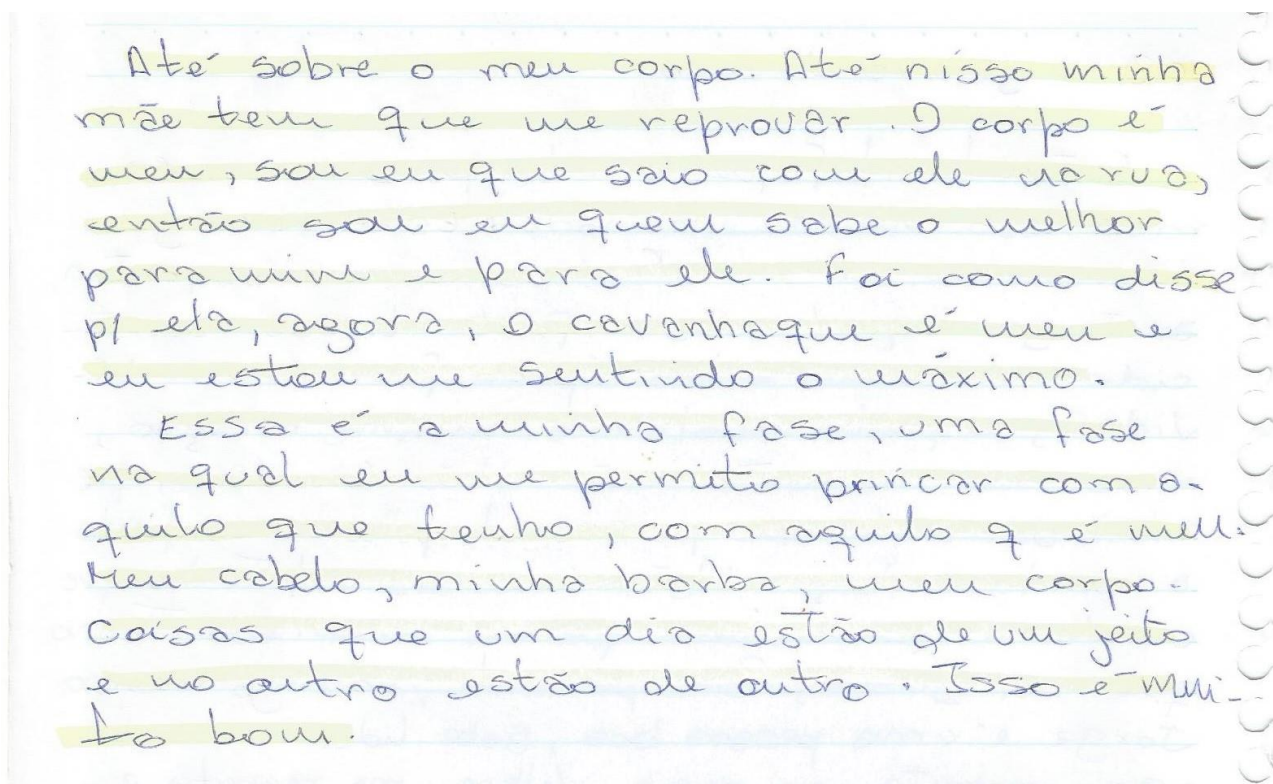 Até sobre o meu corpo. Até nisso minha
mãe tem que me reprovar. O corpo é
meu, sou eu que saio com ele na rua,
então sou eu quem sabe o melhor
para mim e para ele. Foi como disse
p/ ela, agora, o cavanhaque é meu e
eu estou me sentindo o máximo.
Essa é a minha fase, uma fase
na qual eu me permito brincar com a-
quilo que tenho, com aquilo q é meu.
Meu cabelo, minha barba, meu corpo.
Coisas que um dia estão de um jeito
e no outro estão de outro. Isso é mui-
to bom.